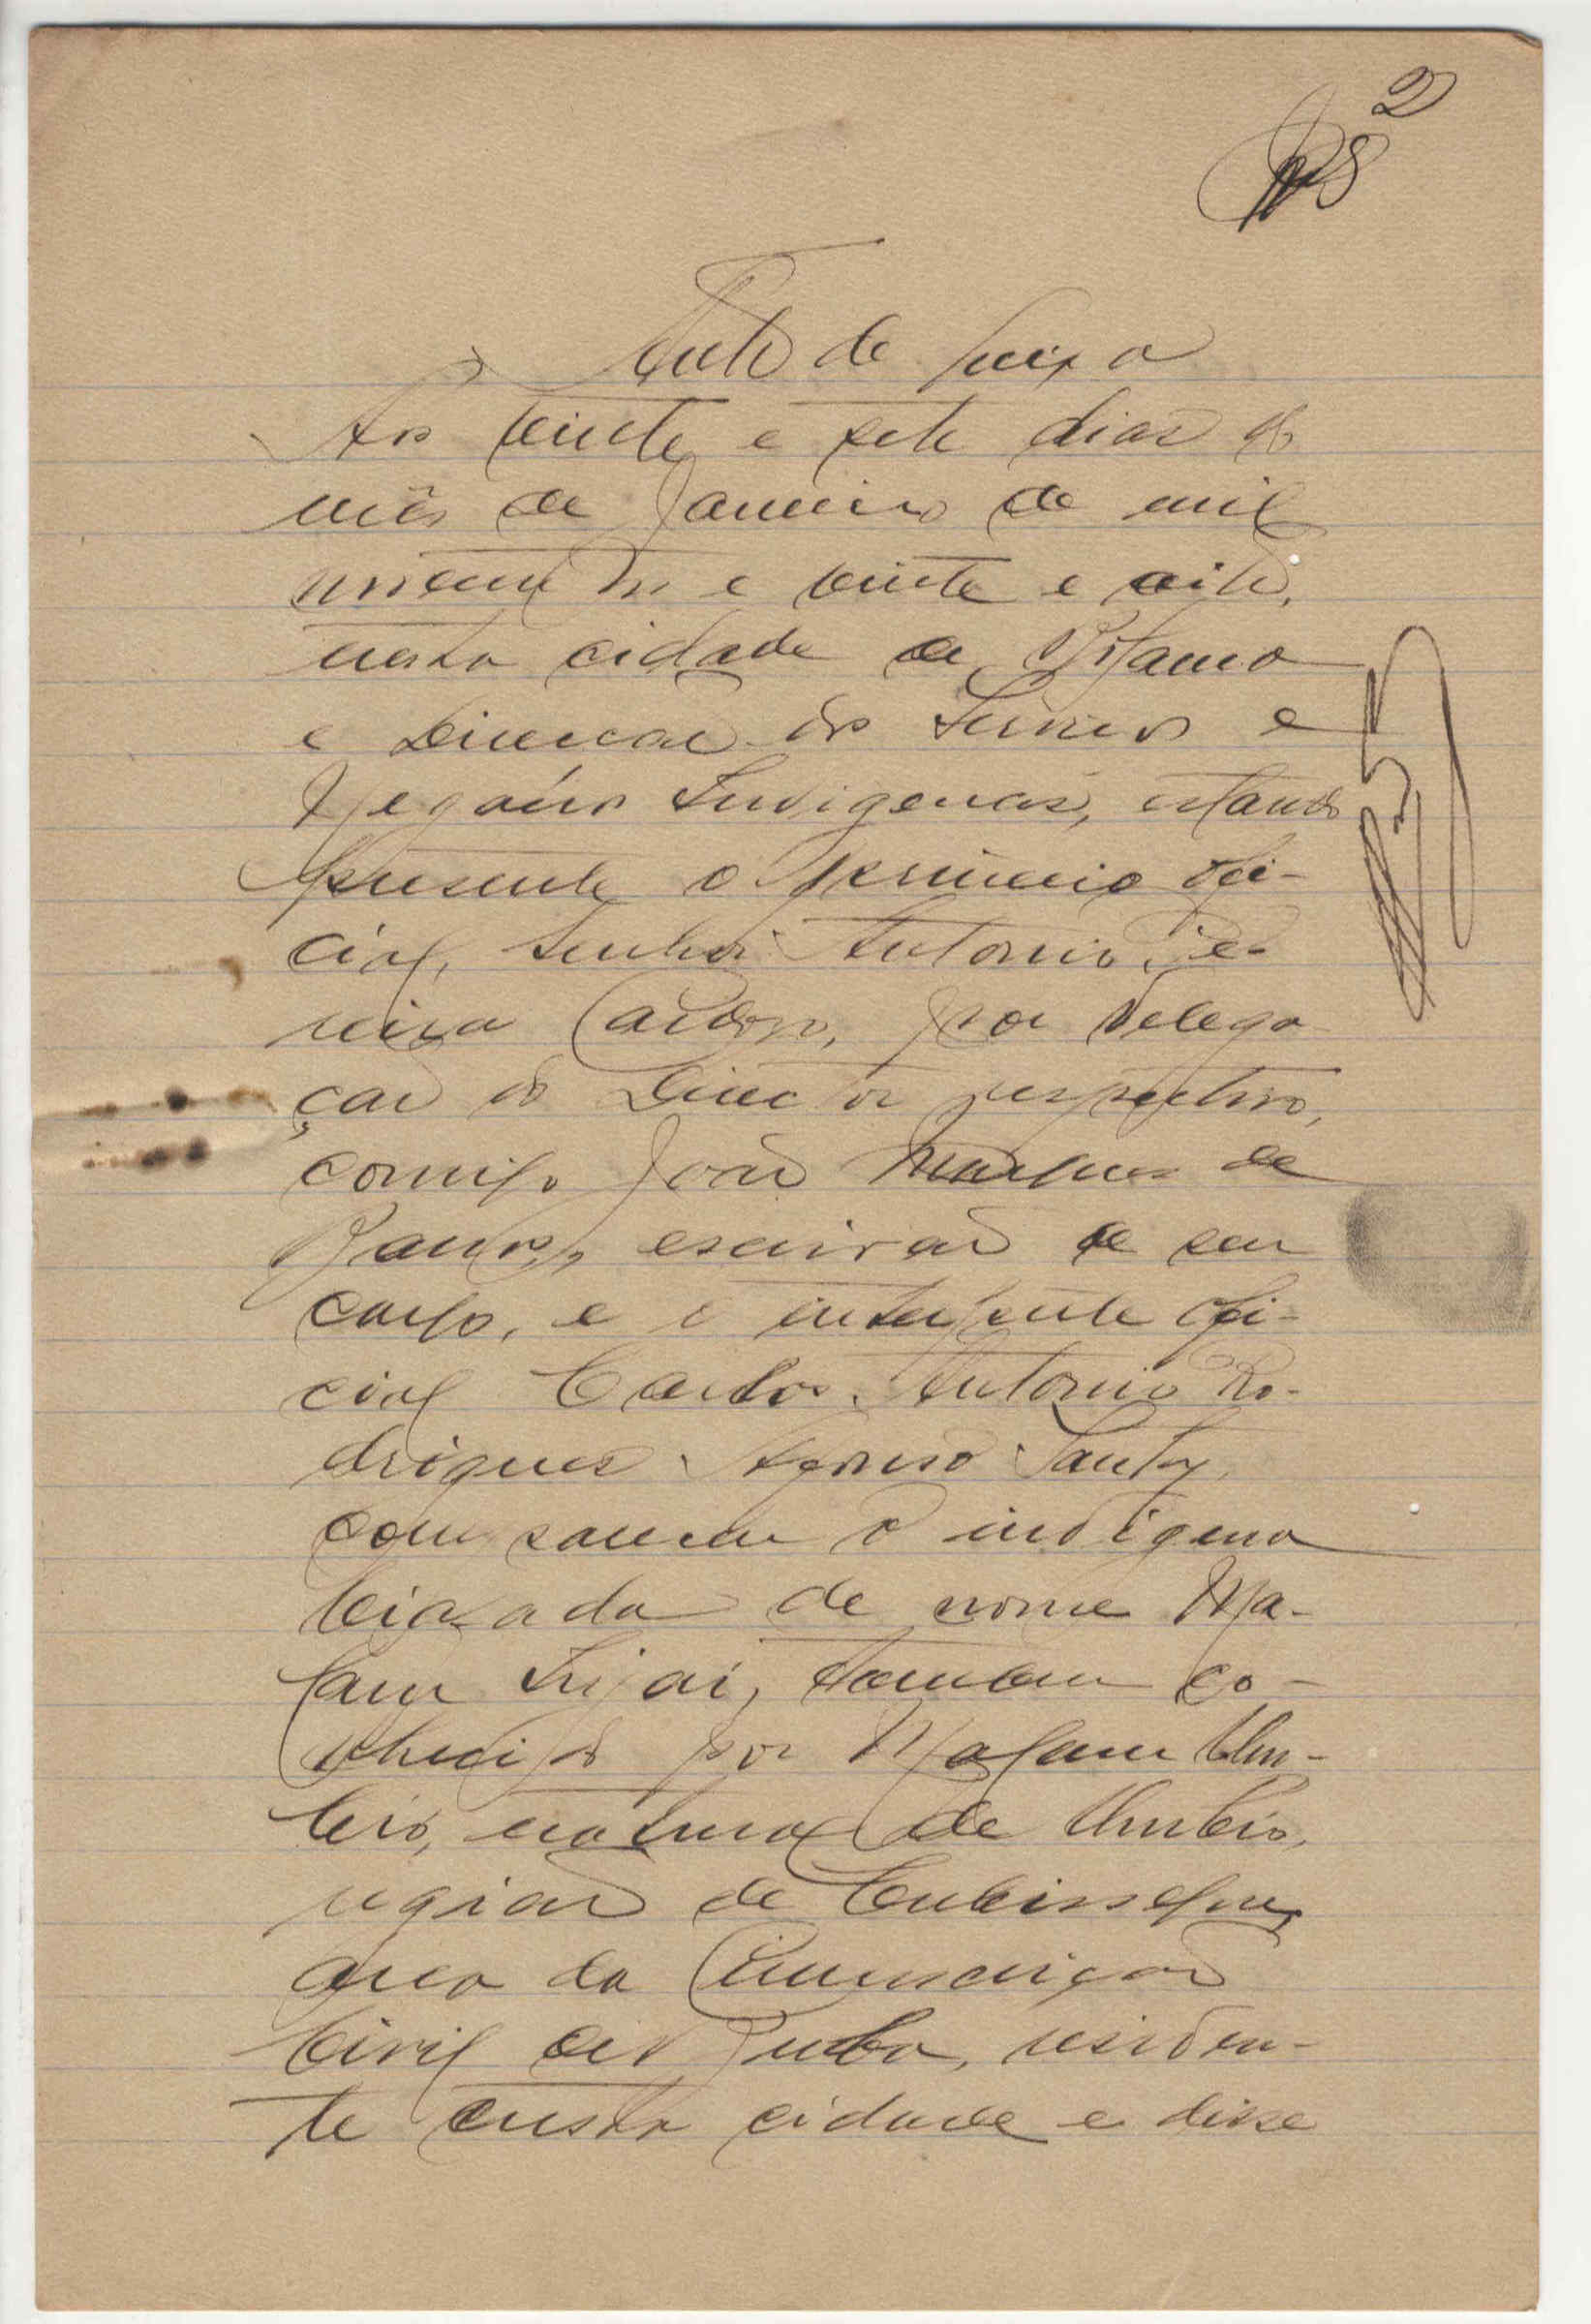 2
Auto de queixa
Aos vinte e sete dias do
mês de Janeiro de mil
novecentos e vinte e oito,
nesta cidade de Bolama
e Direcção dos Serviços e
Negócios Indigenas, estando
presente o primeiro ofi-
cial, Senhor Antonio Pe-
reira Cardoso, por delega
ção do Director respectivo,
comigo João Marques de
Barros, escrivão de seu
cargo, e o interprete ofi-
cial Carlos Antonio Ro-
drigues Afonso Santy,
compareceu o indigena
de nome Ma-
lam Injai, tambem co-
nhecido por Malam
natural de
região de
área da Circunscrição
Civil de Buba, residen-
te nesta cidade e disse